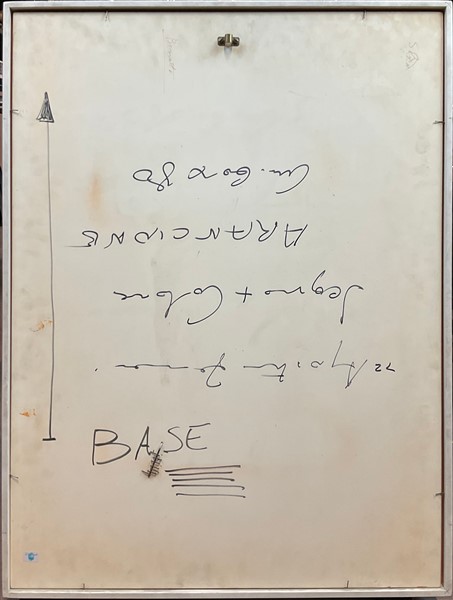 72/Agostino Ferrari
Segno + Colore
ARANCIONE
Cm. 60 x 80
BASE